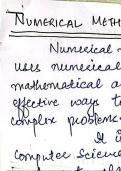 NUMERICAL METH
Numerical
uses numerical
mathematical a
effective ways t
complex problems
It i
computer Scienc